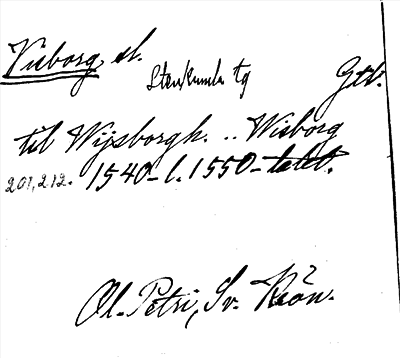 Visborg, sl.
Stenkumla tg Gtl.
til Wijsborgh. .. Wisborg
201,212. 1540- l. 1550-talet.
Ol. Petri, Sv. Krön.